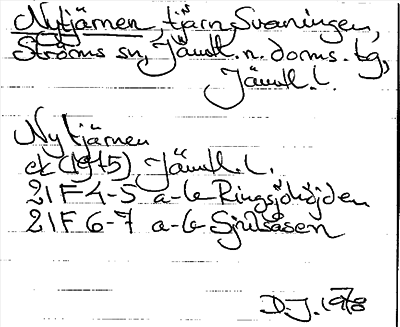 Nytjärnen, tjärn Svaningen,
Ströms sn, Jämtl. n. doms. tg,
Jämtl. l.
Nytjärnen
ek (1975) Jämtl. l.
21F 4-5 a-b Ringsjöhöjden
21F 6-7 a-b Sjulsåsen
D.J. 1978